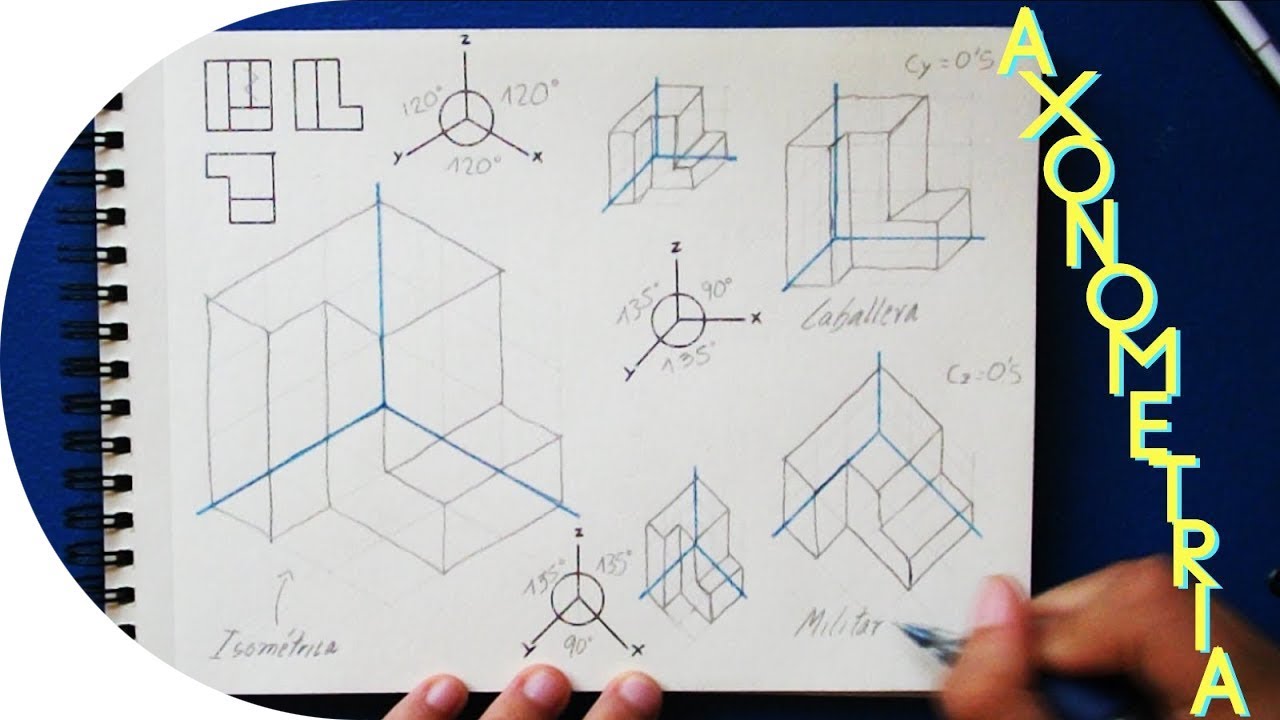 z
120° 120°
y x
120°
Cy=0'5
z
135° 90°
x
y 135°
Caballera
Cz=0'5
z
135° 135°
y 90° x
Isométrica
Militar
AXONOMETRIA